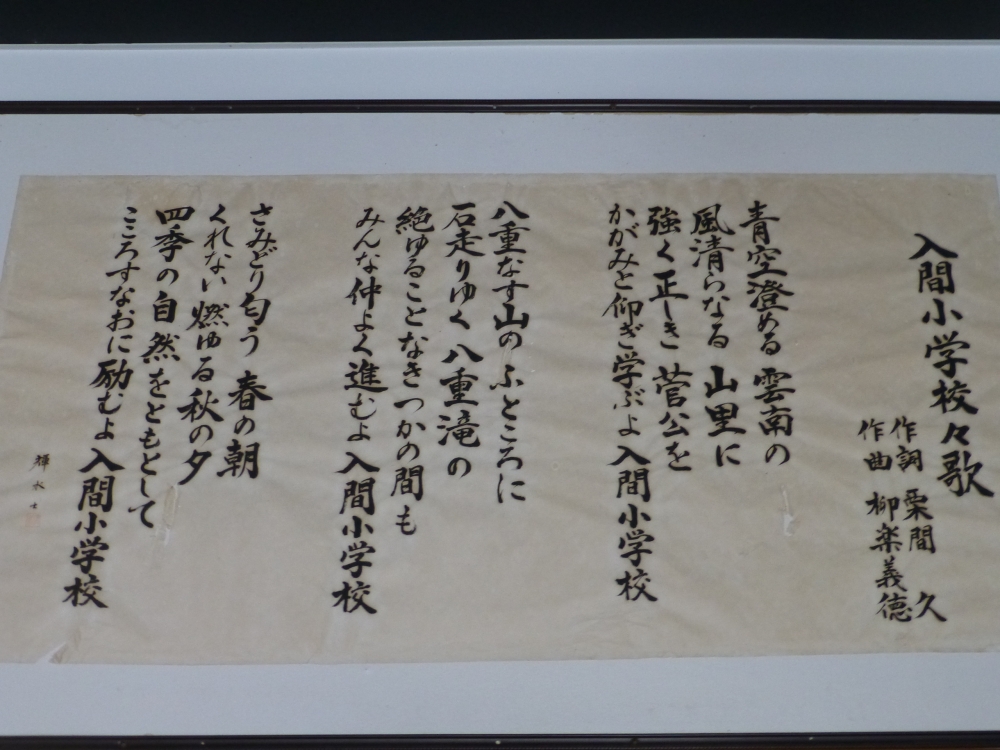 入間小学校々歌
作詞 栗間 久
作曲 柳楽義徳
青空澄める 雲南の
風清らなる 山里に
強く正しき 菅公を
かがみと仰ぎ学ぶよ 入間小学校
八重なす山の ふところに
石走りゆく 八重滝の
絶ゆることなきつかの間も
みんな仲よく進むよ 入間小学校
さみどり匂う 春の朝
くれない燃ゆる秋の夕
四季の自然をともとして
こころすなおに励むよ 入間小学校